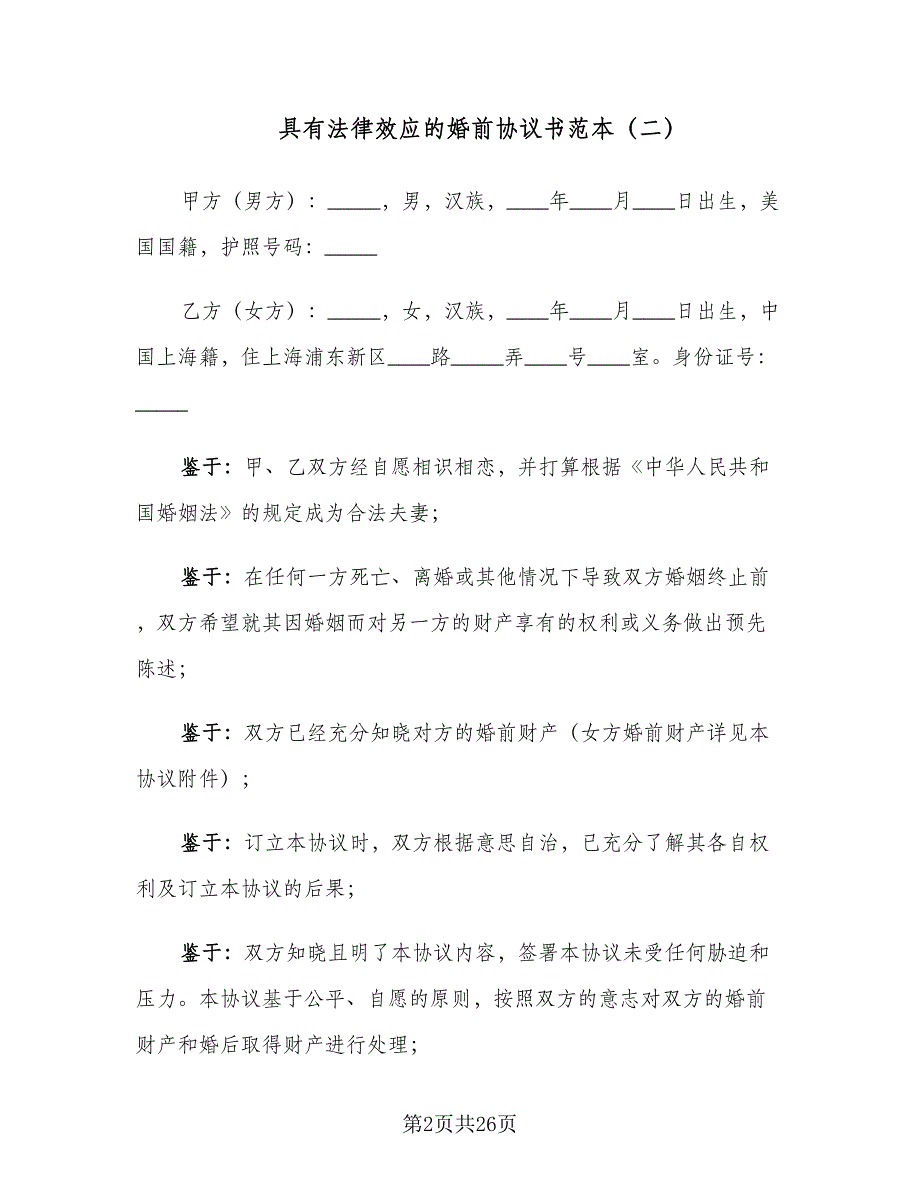 具有法律效应的婚前协议书范本（二）
甲方（男方）：_____，男，汉族，____年____月____日出生，美
国国籍，护照号码：_____
乙方（女方）：_____，女，汉族，____年____月____日出生，中
国上海籍，住上海浦东新区____路_____弄____号____室。身份证号：
_____
鉴于：甲、乙双方经自愿相识相恋，并打算根据《中华人民共和
国婚姻法》的规定成为合法夫妻；
鉴于：在任何一方死亡、离婚或其他情况下导致双方婚姻终止前
，双方希望就其因婚姻而对另一方的财产享有的权利或义务做出预先
陈述；
鉴于：双方已经充分知晓对方的婚前财产（女方婚前财产详见本
协议附件）；
鉴于：订立本协议时，双方根据意思自治，已充分了解其各自权
利及订立本协议的后果；
鉴于：双方知晓且明了本协议内容，签署本协议未受任何胁迫和
压力。本协议基于公平、自愿的原则，按照双方的意志对双方的婚前
财产和婚后取得财产进行处理；
第2页共26页